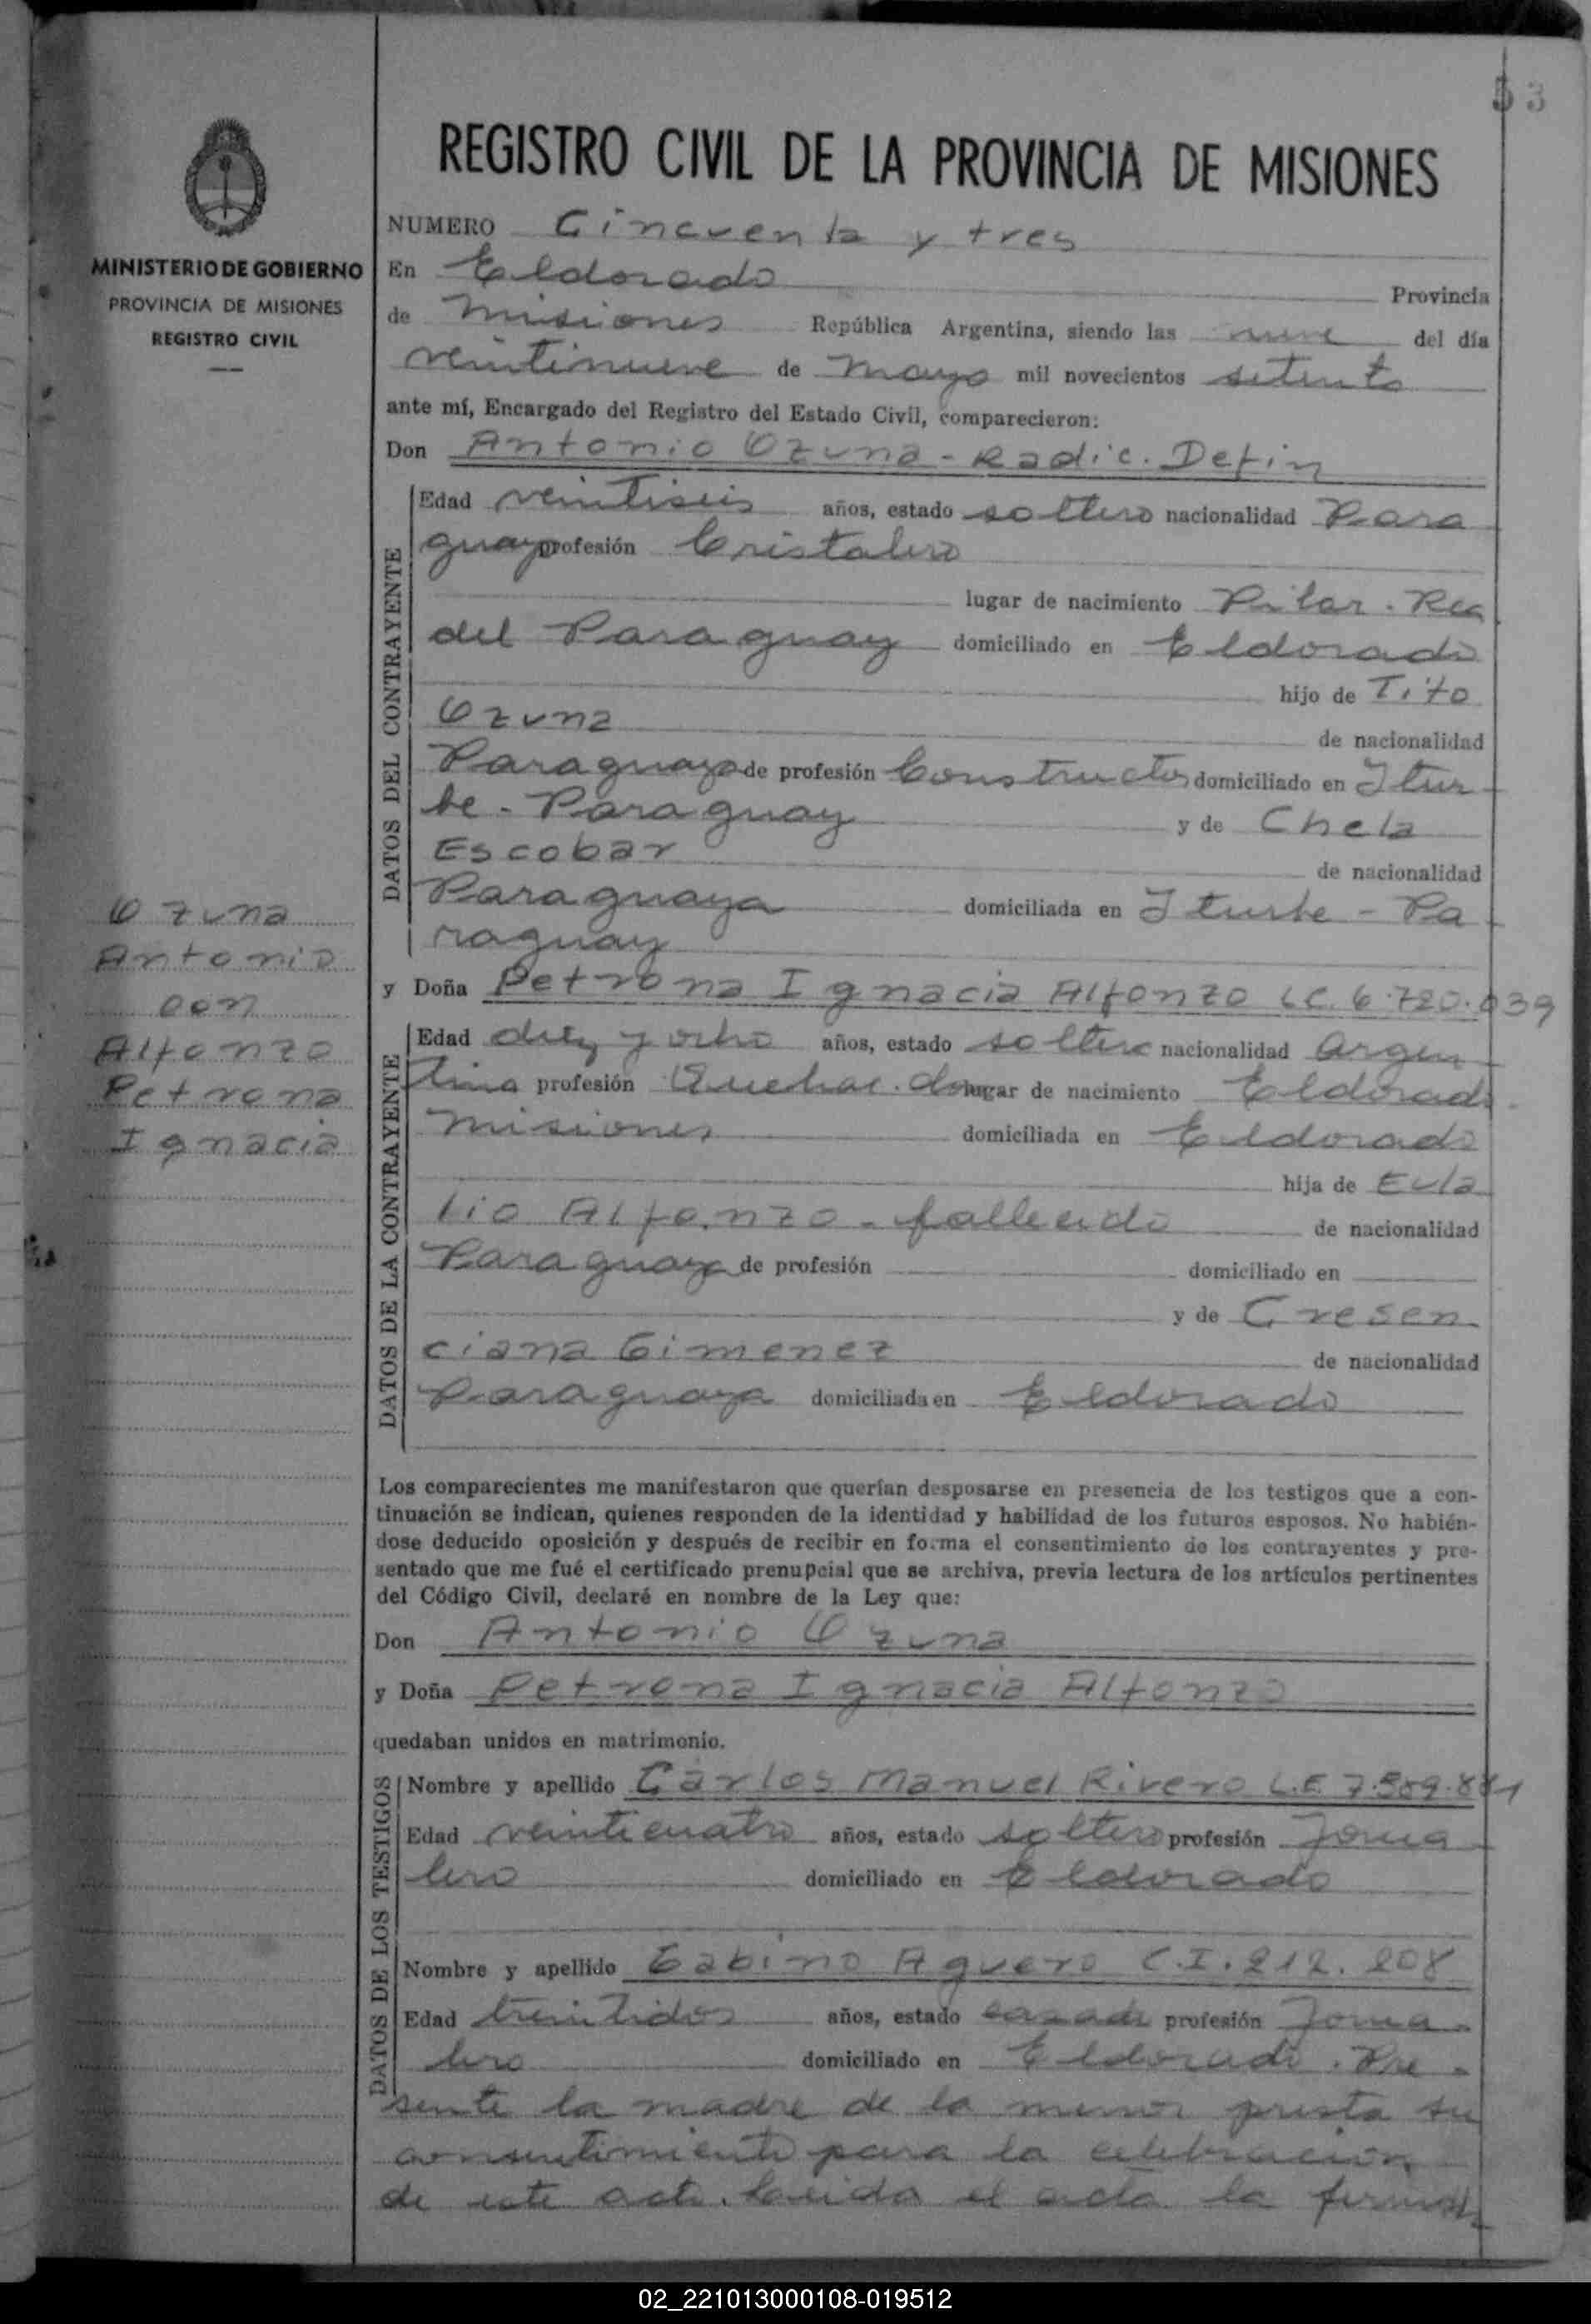 53
REGISTRO CIVIL DE LA PROVINCIA DE MISIONES
MINISTERIO DE GOBIERNO
PROVINCIA DE MISIONES
REGISTRO CIVIL
NUMERO Cincuenta y tres
En Eldorado Provincia
de Misiones República Argentina, siendo las nueve del día
veintinueve de Mayo mil novecientos setenta
ante mí, Encargado del Registro del Estado Civil, comparecieron:
Don Antonio Ozuna - Radic. Defin
DATOS DEL CONTRAYENTE
Edad veintiseis años, estado soltero nacionalidad Para
guayo profesión Cristalero
lugar de nacimiento Pilar. Rca
del Paraguay domiciliado en Eldorado
hijo de Tito
Ozuna de nacionalidad
Paraguayo de profesión Constructor domiciliado en Itur
be - Paraguay y de Chela
Escobar de nacionalidad
Paraguaya domiciliada en Iturbe - Pa
raguay
Ozuna
Antonio
con
Alfonzo
Petrona
Ignacia
y Doña Petrona Ignacia Alfonzo LC. 6.720.039
DATOS DE LA CONTRAYENTE
Edad diez y ocho años, estado soltera nacionalidad Argen
tina profesión Quehac. dom lugar de nacimiento Eldorado
Misiones domiciliada en Eldorado
hija de Eula
lio Alfonzo - fallecido de nacionalidad
Paraguaya de profesión domiciliado en
y de Cresen
ciana Gimenez de nacionalidad
Paraguaya domiciliada en Eldorado
Los comparecientes me manifestaron que querían desposarse en presencia de los testigos que a con-
tinuación se indican, quienes responden de la identidad y habilidad de los futuros esposos. No habién-
dose deducido oposición y después de recibir en forma el consentimiento de los contrayentes y pre-
sentado que me fué el certificado prenupcial que se archiva, previa lectura de los artículos pertinentes
del Código Civil, declaré en nombre de la Ley que:
Don Antonio Ozuna
y Doña Petrona Ignacia Alfonzo
quedaban unidos en matrimonio.
DATOS DE LOS TESTIGOS
Nombre y apellido Carlos Manuel Rivero L.E 7.589.881
Edad veinticuatro años, estado soltero profesión Jorna
lero domiciliado en Eldorado
Nombre y apellido Gabino Aguero C.I. 212.208
Edad treintidos años, estado casado profesión Jorna-
lero domiciliado en Eldorado. Pre-
sente la madre de la menor presta su
consentimiento para la celebración
de este acto. Leida el acta la firman
02_221013000108-019512